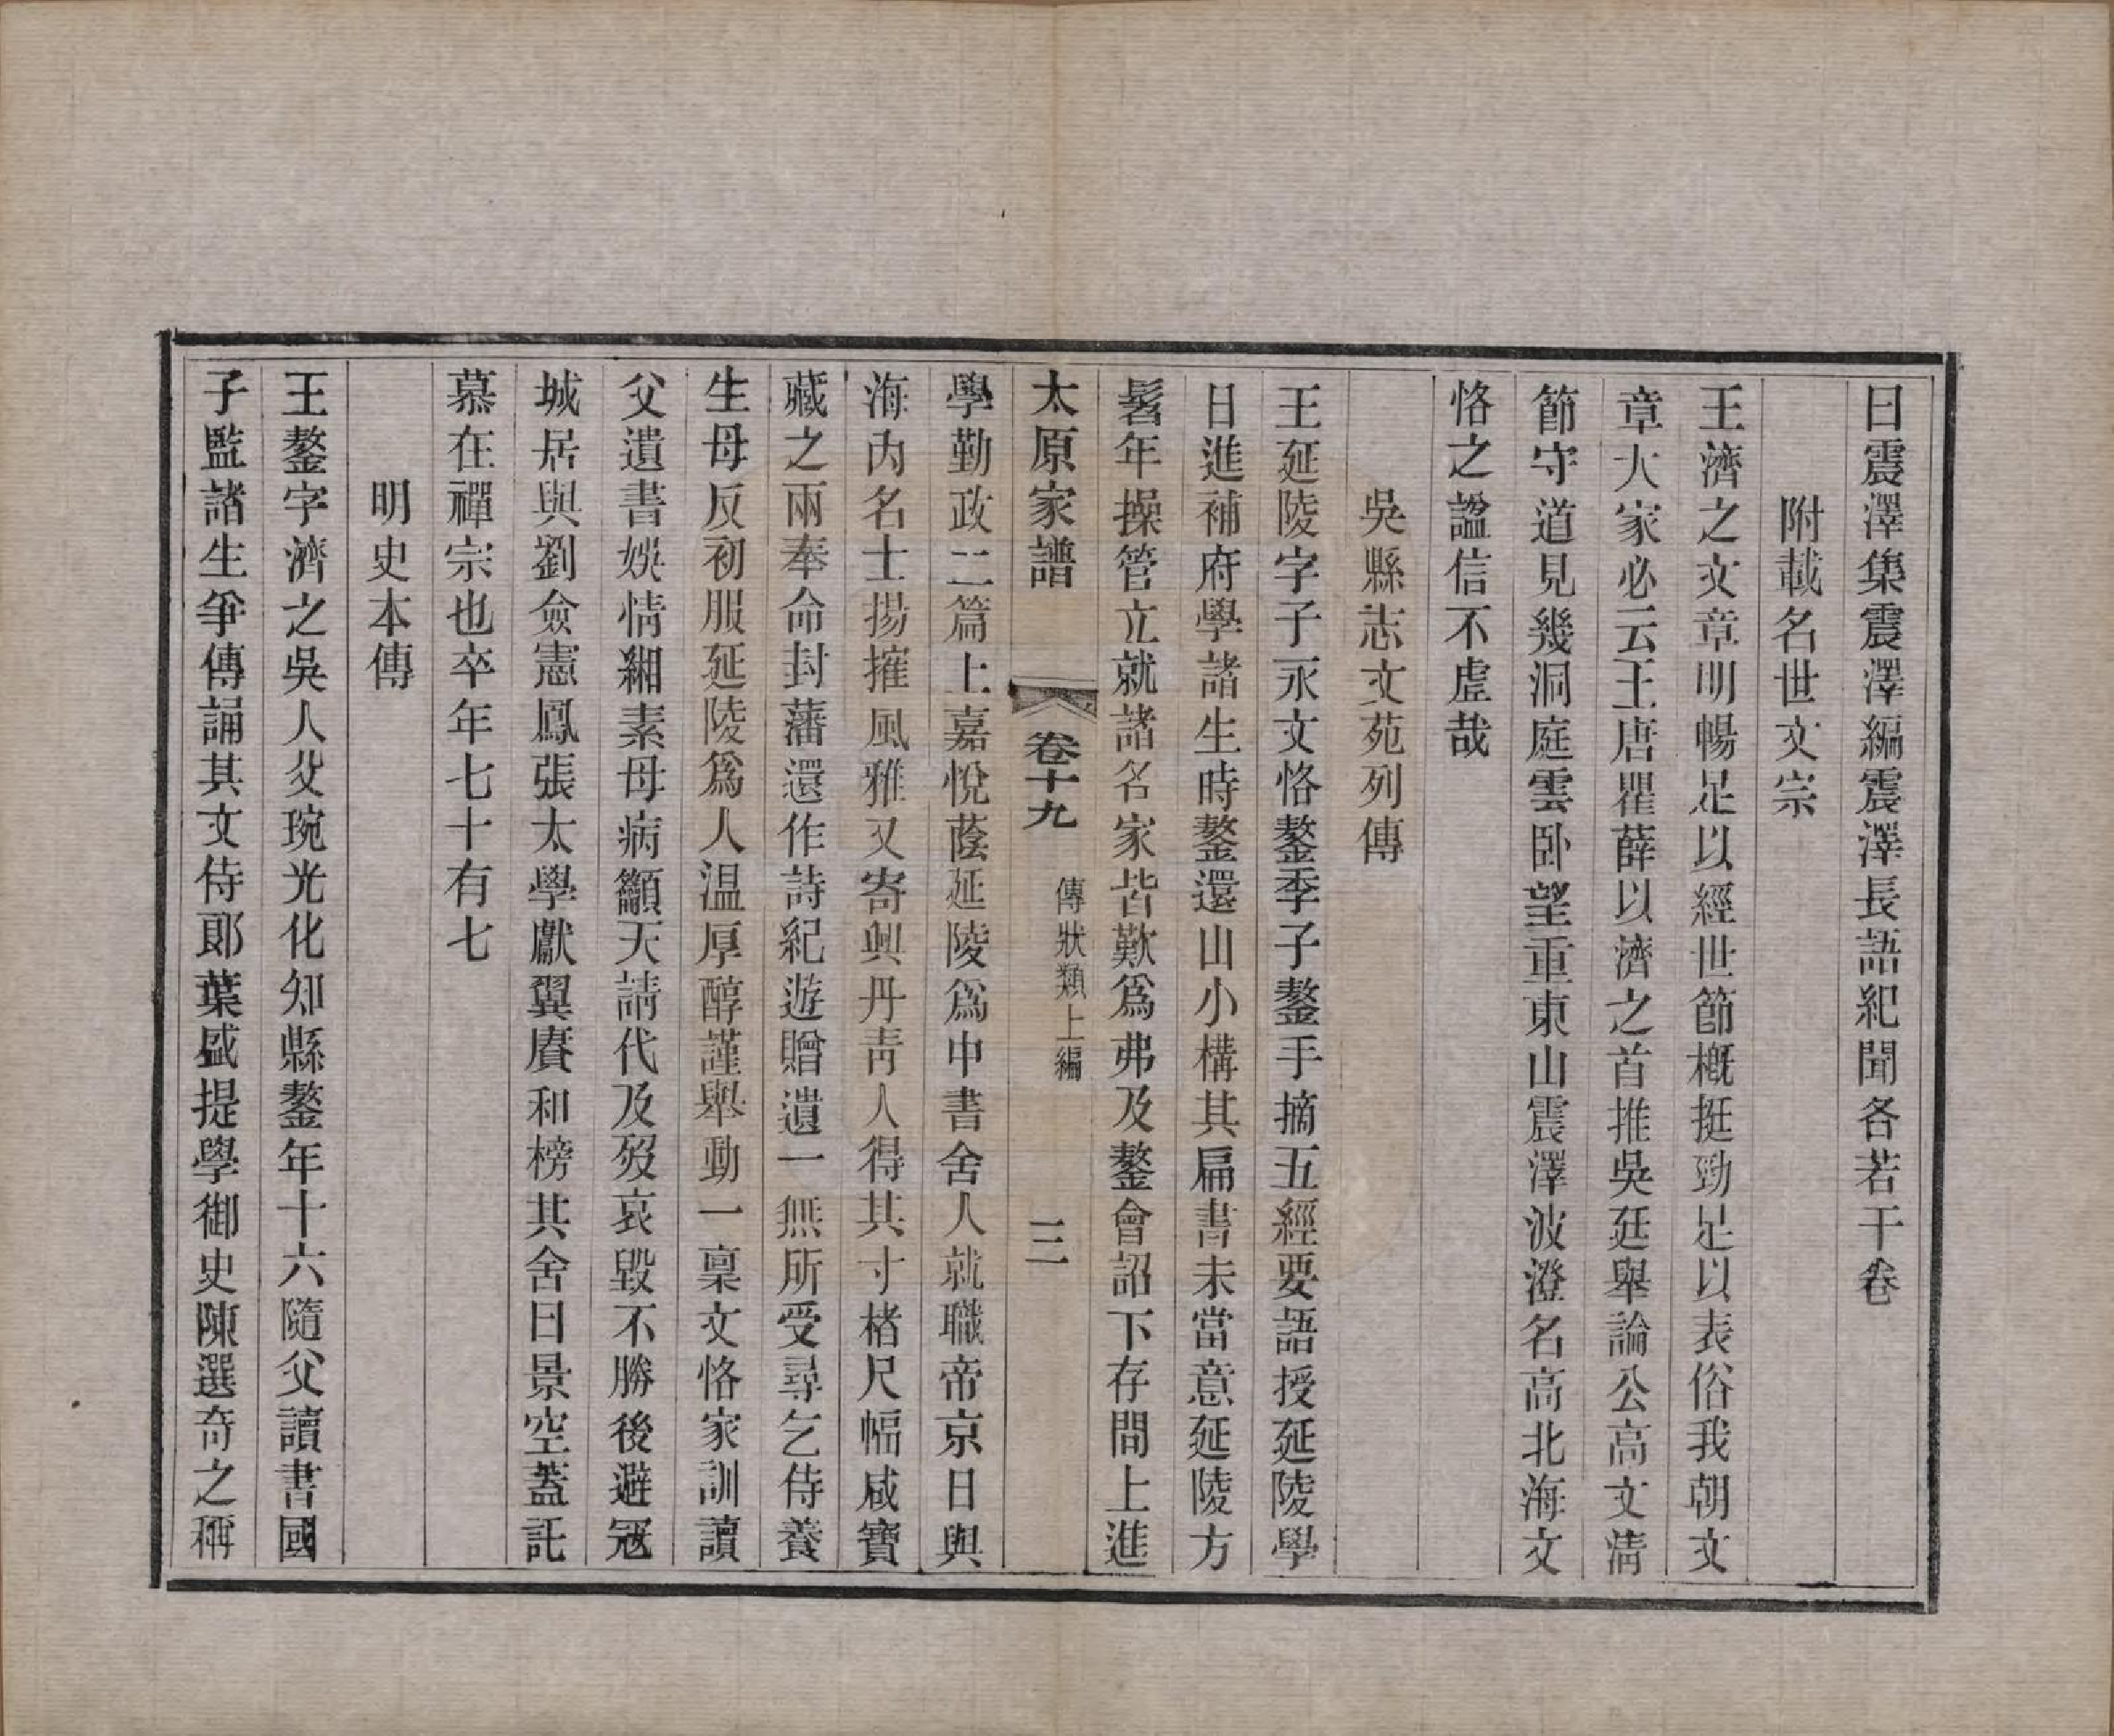 曰震澤集震澤編震澤長語紀聞各若干卷
附載名世文宗
王濟之文章明暢足以經世節槪挺勁足以表俗我朝文
章大家必云王唐瞿薛以濟之首推吳廷舉論公高文淸
節守道見幾洞庭雲卧望重東山震澤波澄名高北海文
恪之諡信不虛哉
吳縣志文苑列傳
王延陵字子永文恪鏊季子鏊手摘五經要語授延陵學
日進補府學諸生時鏊還山小構其扁書未當意延陵方
髫年操管立就諸名家皆歎爲弗及鏊會詔下存問上進
太原家譜 卷十九 傳狀類上編 三
學勤政二篇上嘉悅蔭延陵爲中書舍人就職帝京日與
海內名士揚搉風雅又寄興丹靑人得其寸楮尺幅咸寶
藏之兩奉命封藩還作詩紀遊贈遺一無所受尋乞侍養
生母反初服延陵爲人溫厚醇謹舉動一稟文恪家訓讀
父遺書娛情緗素母病籲天請代及歿哀毀不勝後避寇
城居與劉僉憲鳳張太學獻翼賡和榜其舍曰景空蓋託
慕在禪宗也卒年七十有七
明史本傳
王鏊字濟之吳人父琬光化知縣鏊年十六隨父讀書國
子監諸生爭傳誦其文侍郞葉盛提學御史陳選奇之稱